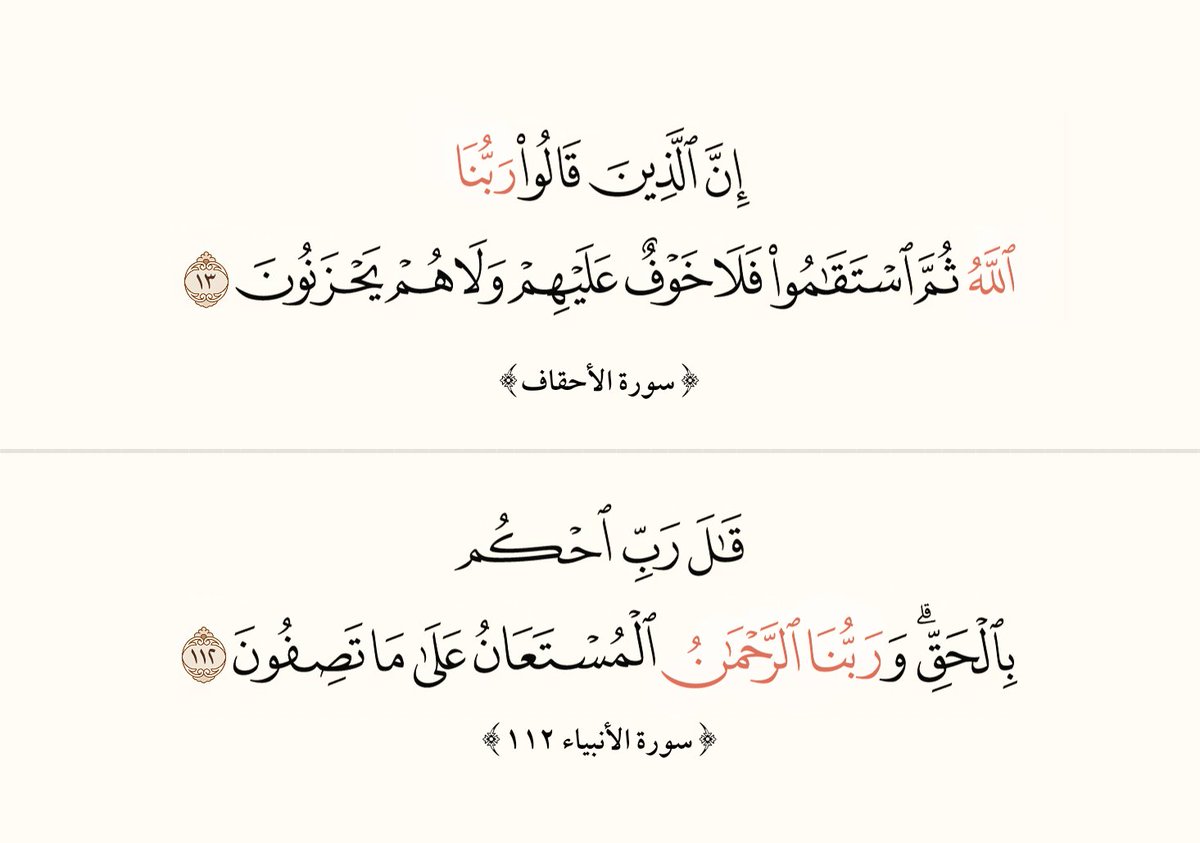 إِنَّ ٱلَّذِينَ قَالُوا۟ رَبُّنَا
ٱللَّهُ ثُمَّ ٱسْتَقَـٰمُوا۟ فَلَا خَوْفٌ عَلَيْهِمْ وَلَا هُمْ يَحْزَنُونَ ١٣
﴿ سورة الأحقاف ﴾
قَـٰلَ رَبِّ ٱحْكُم
بِٱلْحَقِّ ۗ وَرَبُّنَا ٱلرَّحْمَـٰنُ ٱلْمُسْتَعَانُ عَلَىٰ مَا تَصِفُونَ ١١٢
﴿ سورة الأنبياء ١١٢ ﴾